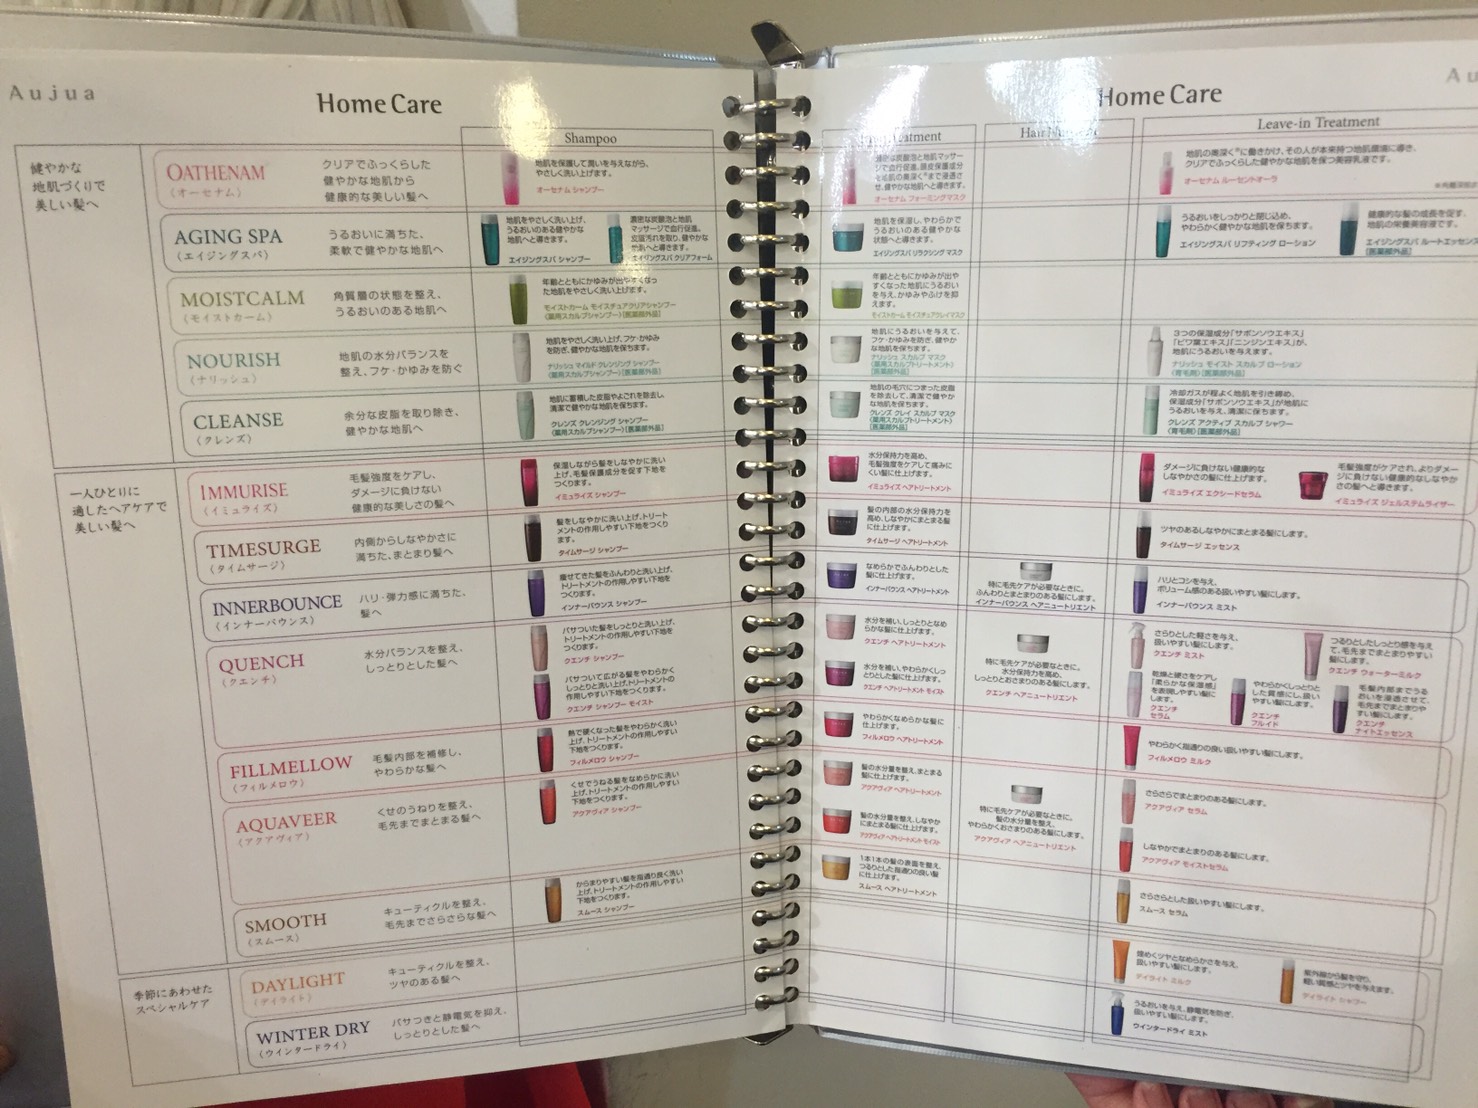 Aujua
Home Care
Shampoo
健やかな
地肌づくりで
美しい髪へ
OATHENAM
(オーセナム)
クリアでふっくらした
健やかな地肌から
健康的な美しい髪へ
地肌を保護して潤いを与えながら、
やさしく洗い上げます。
オーセナム シャンプー
AGING SPA
(エイジングスパ)
うるおいに満ちた、
柔軟で健やかな地肌へ
地肌をやさしく洗い上げ、
うるおいのある健やかな
地肌へと導きます。
エイジングスパ シャンプー
濃密な炭酸泡と地肌
マッサージで血行促進。
皮脂汚れを取り、健やかな
地肌へと導きます。
エイジングスパ クリアフォーム
MOISTCALM
(モイストカーム)
角質層の状態を整え、
うるおいのある地肌へ
年齢とともにかゆみが出やすくなっ
た地肌をやさしく洗い上げます。
モイストカーム モイスチュアクリアシャンプー
〈薬用スカルプシャンプー〉[医薬部外品]
NOURISH
(ナリッシュ)
地肌の水分バランスを
整え、フケ・かゆみを防ぐ
地肌をやさしく洗い上げ、フケ・かゆみ
を防ぎ、健やかな地肌を保ちます。
ナリッシュ マイルド クレンジング シャンプー
〈薬用スカルプシャンプー〉[医薬部外品]
CLEANSE
(クレンズ)
余分な皮脂を取り除き、
健やかな地肌へ
地肌に蓄積した皮脂やよごれを除去し、
清潔で健やかな地肌を保ちます。
クレンズ クレンジング シャンプー
〈薬用スカルプシャンプー〉[医薬部外品]
一人ひとりに
適したヘアケアで
美しい髪へ
IMMURISE
(イミュライズ)
毛髪強度をケアし、
ダメージに負けない
健康的な美しさの髪へ
保湿しながら髪をしなやかに洗い
上げ、毛髪保護成分を促す下地を
つくります。
イミュライズ シャンプー
TIMESURGE
(タイムサージ)
内側からしなやかさに
満ちた、まとまり髪へ
髪をしなやかに洗い上げ、トリート
メントの作用しやすい下地をつくり
ます。
タイムサージ シャンプー
INNERBOUNCE
(インナーバウンス)
ハリ・弾力感に満ちた、
髪へ
痩せてきた髪をふんわりと洗い上げ、
トリートメントの作用しやすい下地を
つくります。
インナーバウンス シャンプー
QUENCH
(クエンチ)
水分バランスを整え、
しっとりとした髪へ
パサついた髪をしっとりと洗い上げ、
トリートメントの作用しやすい下地を
つくります。
クエンチ シャンプー
パサついて広がる髪をやわらかく
しっとりと洗い上げ、トリートメントの
作用しやすい下地をつくります。
クエンチ シャンプー モイスト
FILLMELLOW
(フィルメロウ)
毛髪内部を補修し、
やわらかな髪へ
熱で硬くなった髪をやわらかく洗い
上げ、トリートメントの作用しやすい
下地をつくります。
フィルメロウ シャンプー
AQUAVEER
(アクアヴィア)
くせのうねりを整え、
毛先までまとまる髪へ
くせでうねる髪をなめらかに洗い
上げ、トリートメントの作用しやすい
下地をつくります。
アクアヴィア シャンプー
SMOOTH
(スムース)
キューティクルを整え、
毛先までさらさらな髪へ
からまりやすい髪を指通り良く洗い
上げ、トリートメントの作用しやすい
下地をつくります。
スムース シャンプー
季節にあわせた
スペシャルケア
DAYLIGHT
(デイライト)
キューティクルを整え、
ツヤのある髪へ
WINTER DRY
(ウインタードライ)
パサつきと静電気を抑え、
しっとりとした髪へ
Au
Home Care
Leave-in Treatment
オーセナム フォーミングマスク
地肌の奥深く※に働きかけ、その人が本来持つ地肌環境に導き、
クリアでふっくらした健やかな地肌を保つ美容乳液です。
オーセナム ルーセントオーラ
地肌を保湿し、やわらかで
健やかな地肌を保つ
状態へと導きます。
エイジングスパ リラクシング マスク
うるおいをしっかりと閉じ込め、
やわらかく健やかな地肌を保ちます。
エイジングスパ リフティング ローション
健康的な髪の成長を促す、
地肌の栄養美容液です。
エイジングスパ ルートエッセンス
[医薬部外品]
年齢とともにかゆみが出や
すくなった地肌にうるおい
を与え、かゆみやふけを抑
えます。
モイストカーム モイスチュアクレイマスク
地肌にうるおいを与えて、
フケ・かゆみを防ぎ、健やか
な地肌を保ちます。
ナリッシュ スカルプ マスク
〈薬用スカルプトリートメント〉
[医薬部外品]
3つの保湿成分「サボンソウエキス」
「ビワ葉エキス」「ニンジンエキス」が、
地肌にうるおいを与えます。
ナリッシュ モイスト スカルプ ローション
〈育毛剤〉[医薬部外品]
地肌の毛穴につまった皮脂
を除去して、清潔で健やか
な地肌を保ちます。
クレンズ クレイ スカルプ マスク
〈薬用スカルプトリートメント〉
[医薬部外品]
冷却ガスが程よく地肌を引き締め、
保湿成分「サボンソウエキス」が地肌に
うるおいを与え、清潔に保ちます。
クレンズ アクティブ スカルプ シャワー
〈育毛剤〉[医薬部外品]
水分保持力を高め、
毛髪強度をケアして痛みに
くい髪に仕上げます。
イミュライズ ヘアトリートメント
ダメージに負けない健康的な
しなやかさの髪に仕上げます。
イミュライズ エクシードセラム
毛髪強度がケアされ、よりダメー
ジに負けない健康的なしなやか
さの髪へと導きます。
イミュライズ ジェルステムライザー
髪の内部の水分保持力を
高め、しなやかにまとまる髪
に仕上げます。
タイムサージ ヘアトリートメント
ツヤのあるしなやかにまとまる髪にします。
タイムサージ エッセンス
なめらかでふんわりとした
髪に仕上げます。
インナーバウンス ヘアトリートメント
特に毛先ケアが必要なときに。
ふんわりとまとまりのある髪にします。
インナーバウンス ヘアニュートリエント
ハリとコシを与え、
ボリューム感のある扱いやすい髪にします。
インナーバウンス ミスト
水分を補い、しっとりとなめ
らかな髪に仕上げます。
クエンチ ヘアトリートメント
水分を補い、やわらかくしっ
とりとした髪に仕上げます。
クエンチ ヘアトリートメント モイスト
特に毛先ケアが必要なときに。
水分保持力を高め、
しっとりとおさまりのある髪にします。
クエンチ ヘアニュートリエント
さらりとした軽さを与え、
扱いやすい髪にします。
クエンチ ミスト
つるりとしたしっとり感を与え
て、毛先までまとまりやすい
髪にします。
クエンチ ウォーターミルク
乾燥と硬さをケアし
「柔らかな保湿感」
を表現しやすい髪に
します。
クエンチ
セラム
やわらかくしっとりと
した質感にし、扱い
やすい髪にします。
クエンチ
フルイド
毛髪内部までうる
おいを浸透させて、
毛先までまとまりや
すい髪にします。
クエンチ
ナイトエッセンス
やわらかくなめらかな髪に
仕上げます。
フィルメロウ ヘアトリートメント
やわらかく指通りの良い扱いやすい髪にします。
フィルメロウ ミルク
髪の水分量を整え、まとまる
髪に仕上げます。
アクアヴィア ヘアトリートメント
髪の水分量を整え、しなやか
にまとまる髪に仕上げます。
アクアヴィア ヘアトリートメント モイスト
特に毛先ケアが必要なときに。
髪の水分量を整え、
やわらかくおさまりのある髪にします。
アクアヴィア ヘアニュートリエント
さらさらでまとまりのある髪にします。
アクアヴィア セラム
しなやかでまとまりのある髪にします。
アクアヴィア モイストセラム
1本1本の髪の表面を整え、
つるりとした指通りの良い髪
に仕上げます。
スムース ヘアトリートメント
さらさらとした扱いやすい髪にします。
スムース セラム
煌めくツヤとなめらかさを与え、
扱いやすい髪にします。
デイライト ミルク
紫外線から髪を守り、
軽い質感とツヤを与えます。
デイライト シャワー
うるおいを与え、静電気を防ぎ、
扱いやすい髪にします。
ウインタードライ ミスト